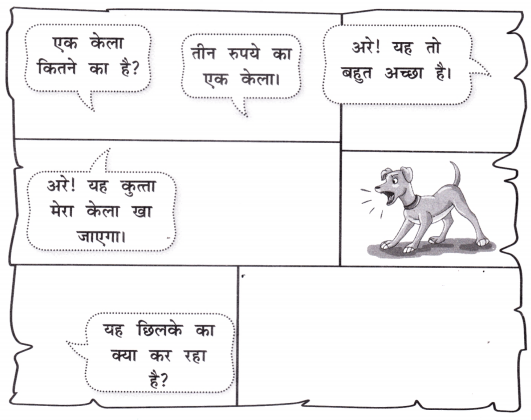 एक केला
कितने का है?
तीन रुपये का
एक केला।
अरे! यह तो
बहुत अच्छा है।
अरे! यह कुत्ता
मेरा केला खा
जाएगा।
यह छिलके का
क्या कर रहा
है?